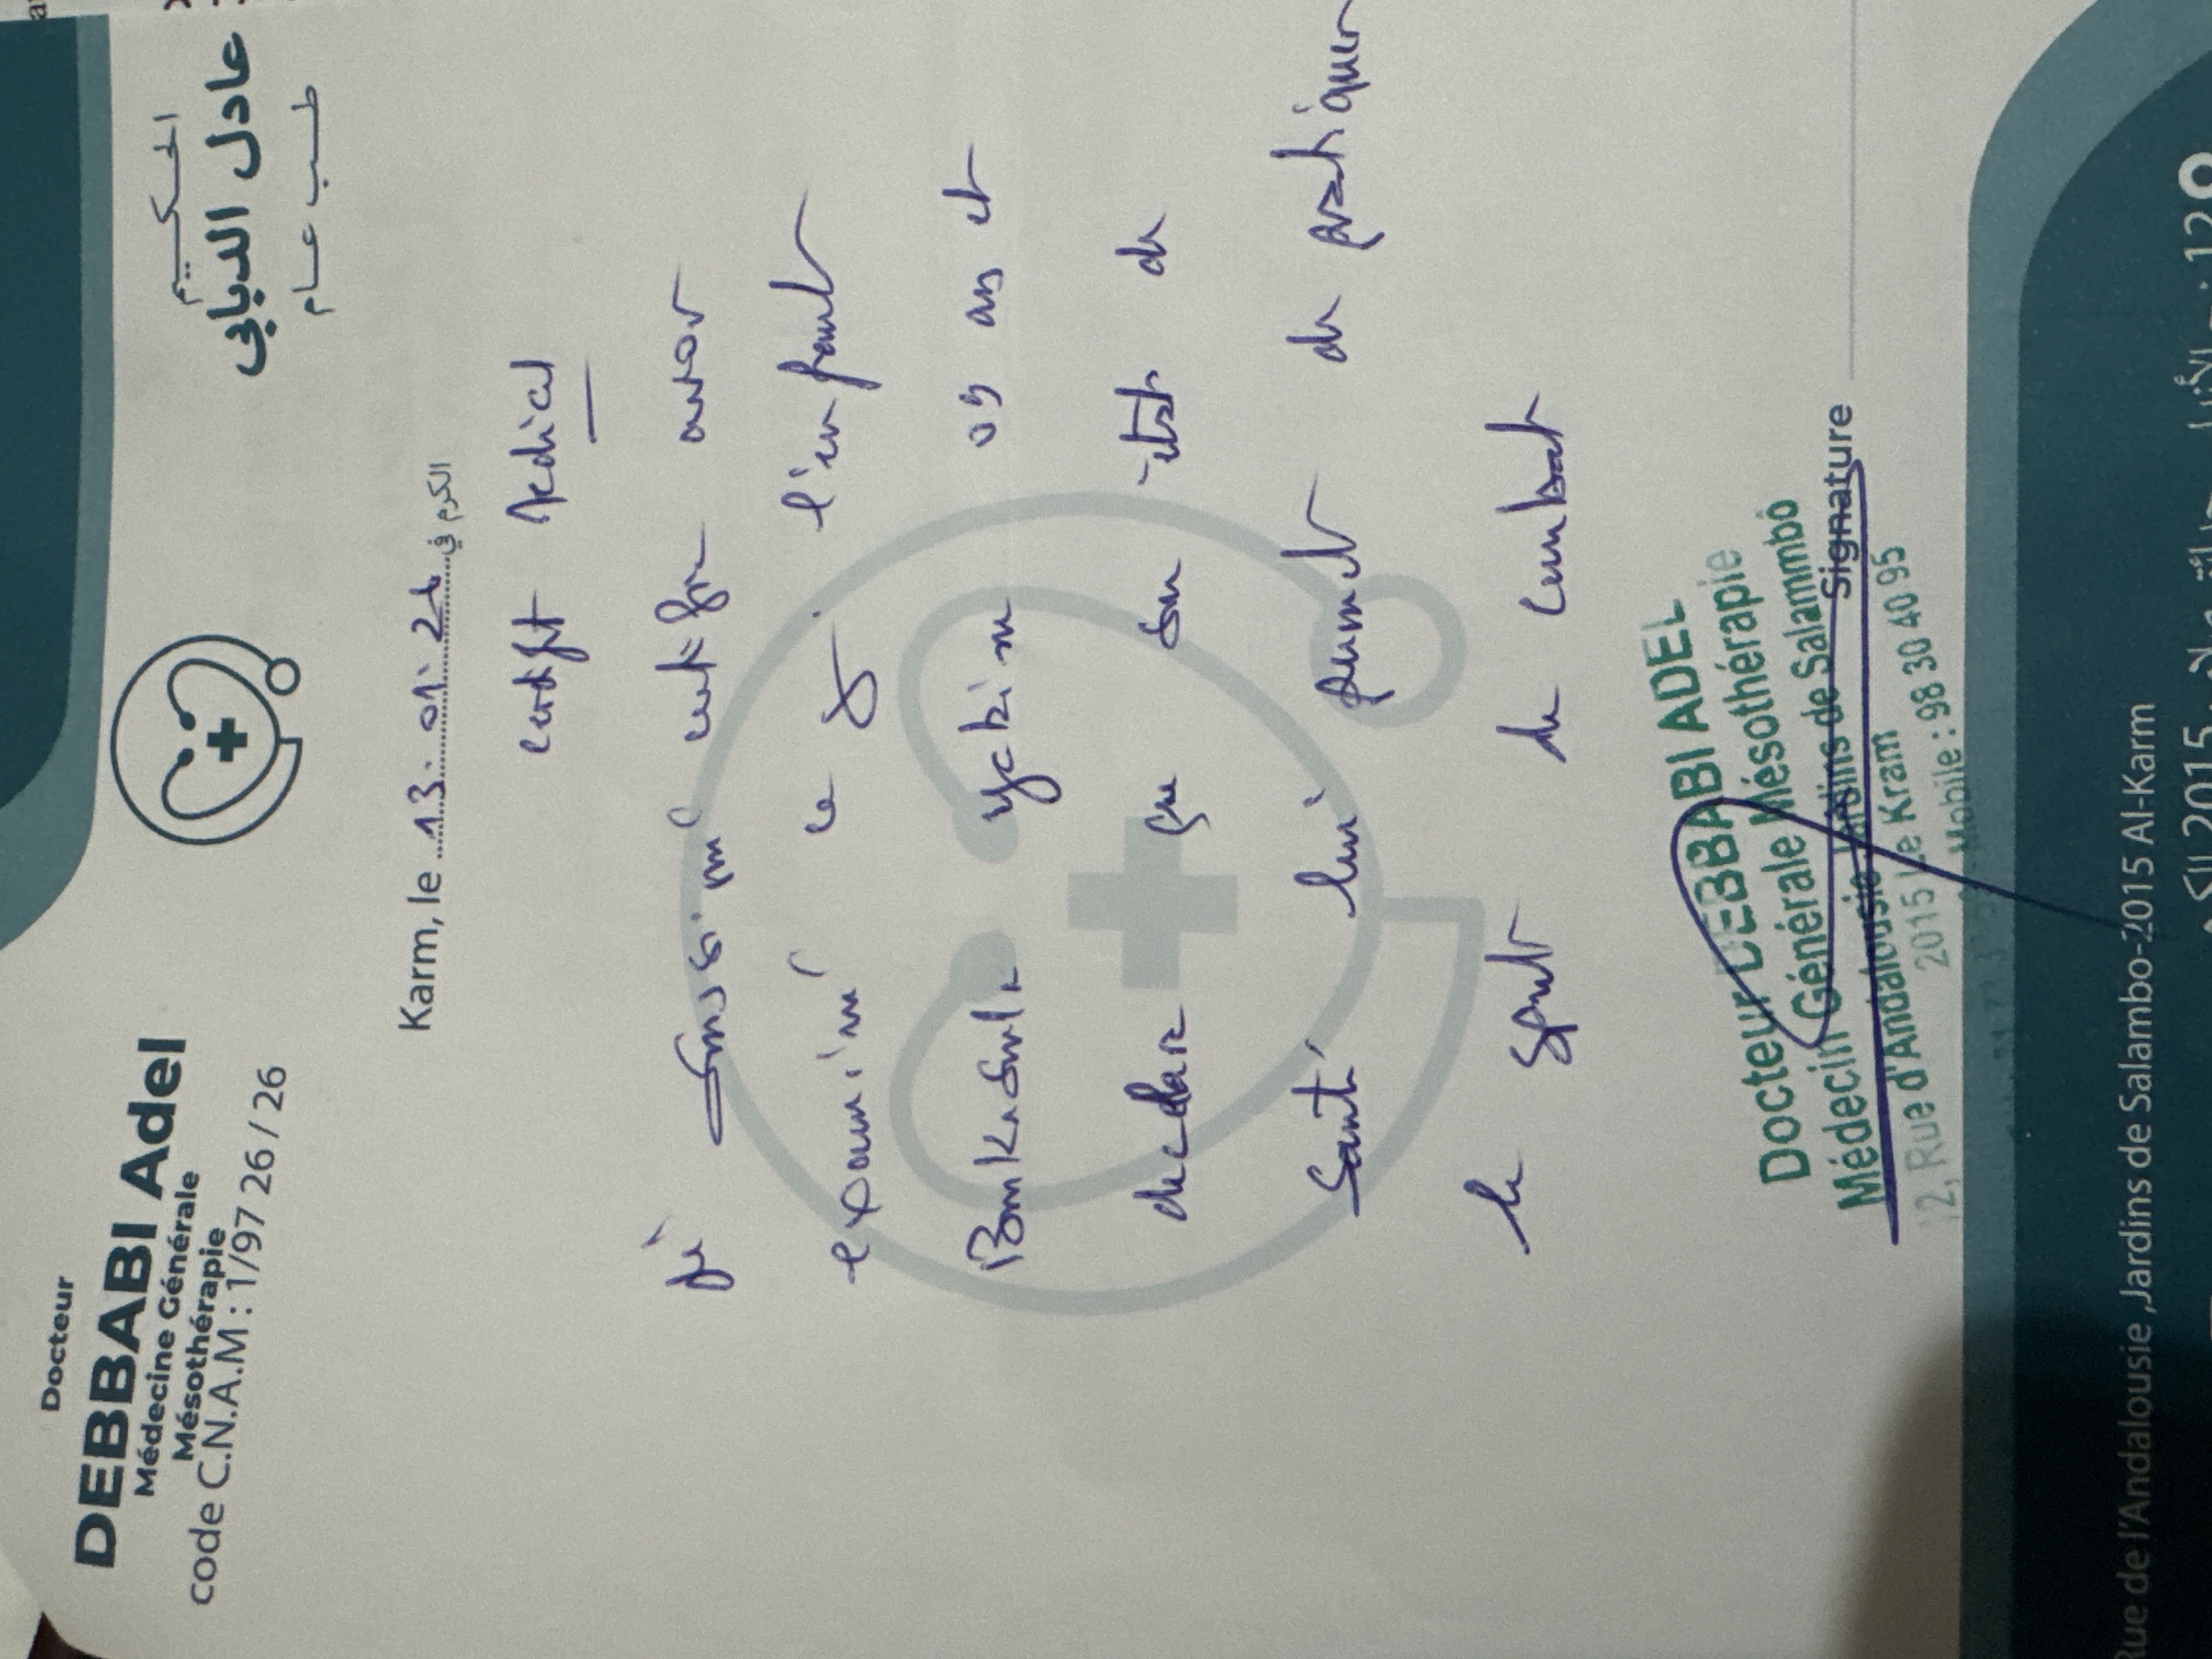 Docteur
DEBBABI Adel
Médecine Générale
Mésothérapie
code C.N.A.M : 1/97 26 / 26
الحكيم
عادل الدبابي
طب عام
Karm, le 13. 01. 26 الكرم في
certift Medical
je soussigné certifie avoir
examiné ce j. l'enfant
ycbin 09 ans et
declare que son état de
santé lui permet de pratiquer
le sport de combat
Docteur DEBBABI ADEL
Médecin Générale Mésothérapie
12, Rue d'Andalousie Jardins de Salammbô
2015 Le Kram
Mobile : 98 30 40 95
Signature
Rue de l'Andalousie ,Jardins de Salambo-2015 Al-Karm